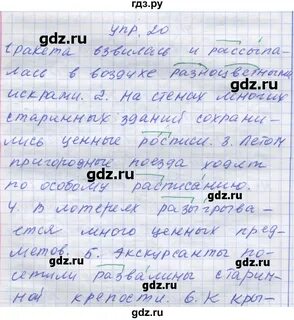 гдз.ру
упр. 20
1.ракета взвилась и рассыпа-
лась в воздухе разноцветными
искрами. 2. На стенах многих
старинных зданий сохрани-
лись ценные росписи. 3. Летом
пригородные поезда ходят
по особому расписанию.
4. В лотереях разыгрыва-
ется много ценных пред-
метов. 5. Экскурсанты по-
сетили развалины старин-
ной крепости. 6. К кры-
гдз.ру